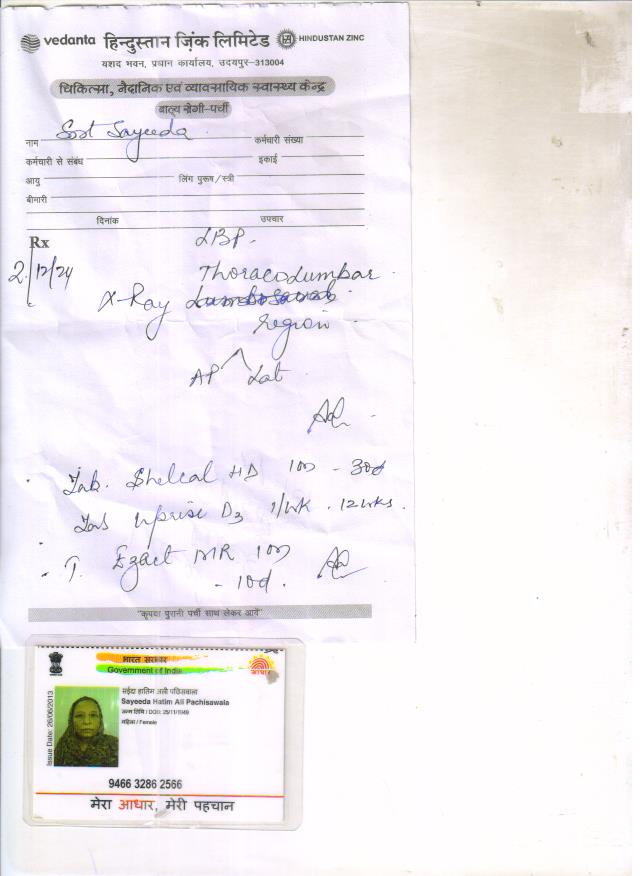 vedanta हिन्दुस्तान ज़िंक लिमिटेड HINDUSTAN ZINC
यशद भवन, प्रधान कार्यालय, उदयपुर–313004
चिकित्सा, नैदानिक एवं व्यावसायिक स्वास्थ्य केन्द्र
बाह्य रोगी-पर्ची
नाम Smt Sayeeda कर्मचारी संख्या
कर्मचारी से संबंध इकाई
आयु लिंग पुरूष/स्त्री
बीमारी
दिनांक उपचार
Rx
LBP.
2/12/24
Thoracolumbar
X-Ray
region
AP Lat
Tab. Shelcal HD 1OD - 30d
Tab Uprise D3 1/wk. 12wks.
T. Ezact MR 1OD
- 10d.
"कृपया पुरानी पर्ची साथ लेकर आवें"
भारत सरकार
Government of India
आधार
Issue Date: 26/06/2013
सईदा हातिम अली पछिसवाला
Sayeeda Hatim Ali Pachisawala
जन्म तिथि / DOB: 25/11/1949
महिला / Female
9466 3286 2566
मेरा आधार, मेरी पहचान